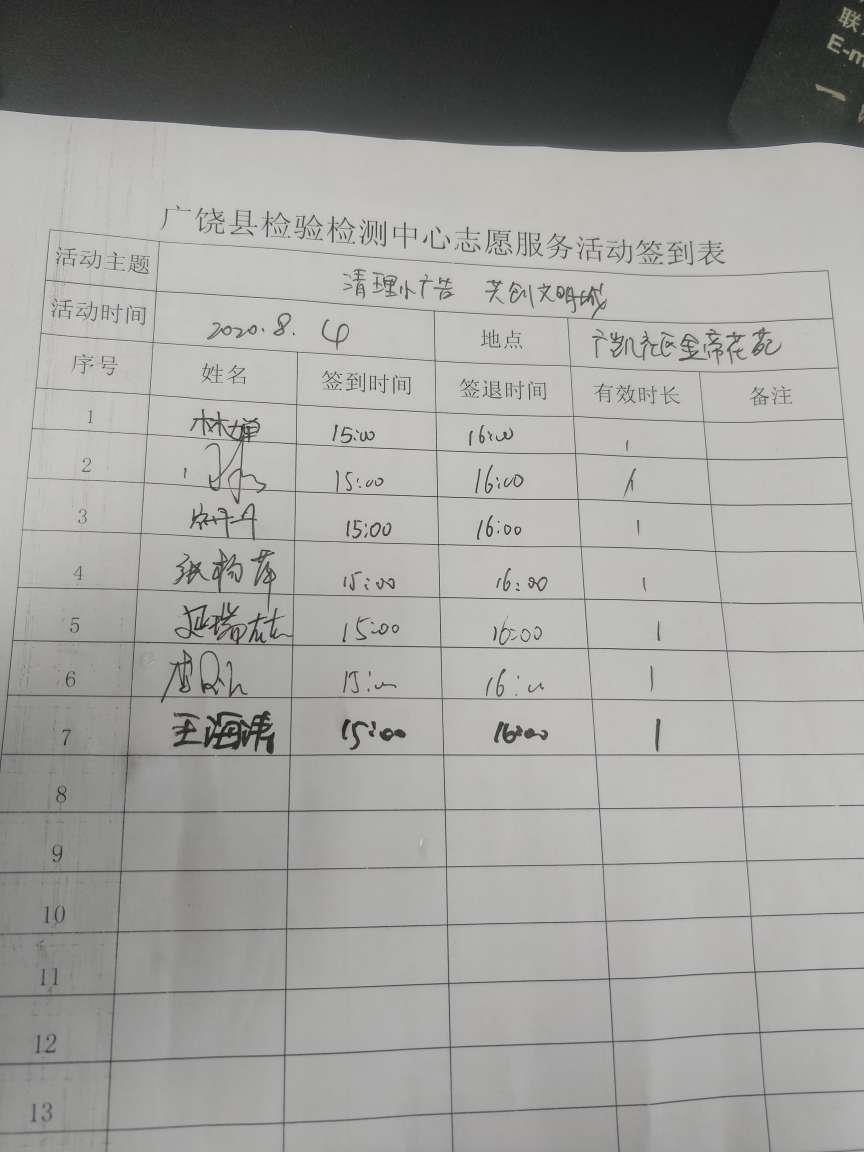 联
E-m
广饶县检验检测中心志愿服务活动签到表
活动主题 清理小广告 共创文明城
活动时间 2020.8.4 地点 广凯社区金帝花苑
序号 姓名 签到时间 签退时间 有效时长 备注
1 林婵 15:00 16:00 1
2 15:00 16:00 1
3 15:00 16:00 1
4 张杨萍 15:00 16:00 1
5 延瑞 15:00 16:00 1
6 15:00 16:00 1
7 王海涛 15:00 16:00 1
8
9
10
11
12
13